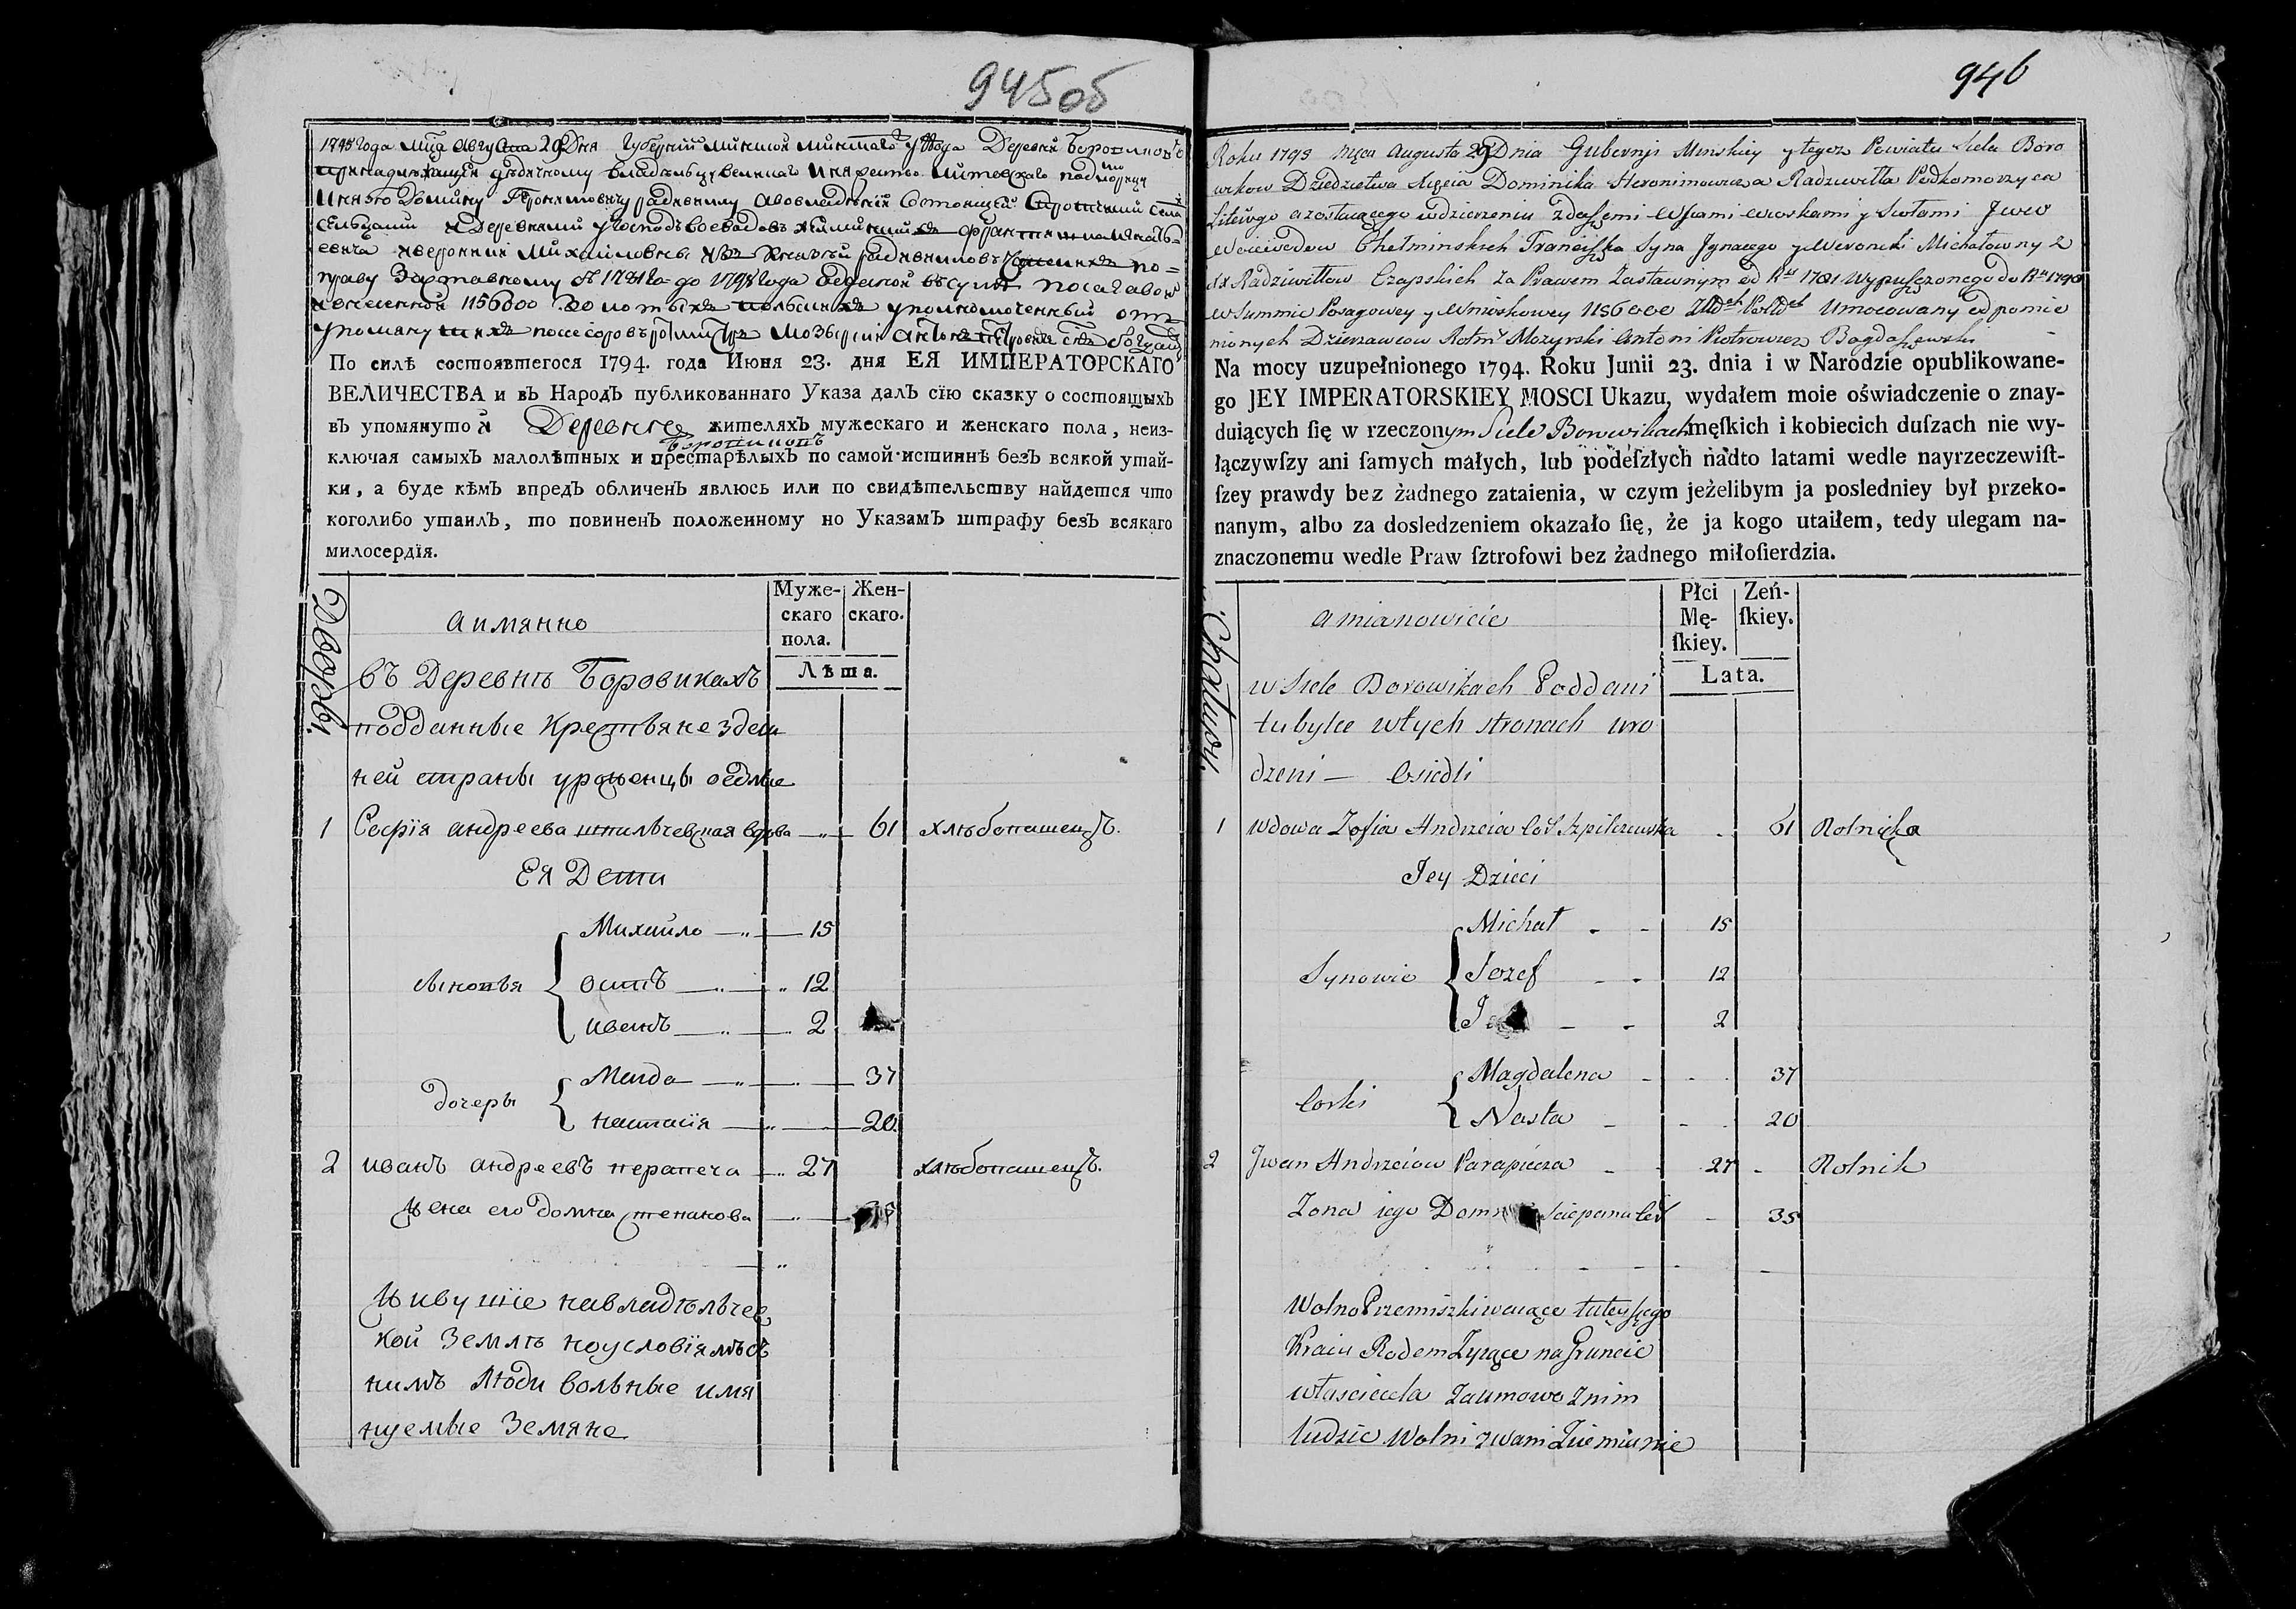 945об
1795 Года мца Августа 29 Дня Губернии Минской Минскаго уезда Деревни Боровиковъ
принадлежащей дедичному владельцу великаго Княжества Литовскаго подкоморичу
Князю Доминику Геронимовичу Радивилу
Михайловны
праву заставному 1781 Го до 1798 года въ сумме посаговой
1156000 золотыхъ польскихъ уполномоченный отъ
По силѣ состоявшегося 1794. года Июня 23. дня ЕЯ ИМПЕРАТОРСКАГО
ВЕЛИЧЕСТВА и въ Народъ публикованнаго Указа далъ сїю сказку о состоящыхъ
въ упомянутой Деревне жителяхъ мужескаго и женскаго пола, неиз-
Боровикахъ
ключая самыхъ малолѣтныхъ и престарѣлыхъ по самой истиннѣ безъ всякой утай-
ки, а буде кѣмъ впредъ обличенъ явлюсь или по свидѣтельству найдется что
коголибо утаилъ, то повиненъ положенному по Указамъ штрафу безъ всякаго
милосердїя.
Дворы.
а имянно
Муже-скаго пола. Жен-скаго.
Лѣта.
въ Деревнѣ Боровикахъ
подданные крестьяне здеш
ней страны уроженцы оседлые
1 Софїя андреева шпилѣчевская вдова 61 хлѣбопашецъ.
Ея Дети
Михайло 15
сыновья осипъ 12
иванъ 2
Магда 37
дочери
настасїя 20
2 иванъ андреевъ перапеча 27 хлѣбопашецъ.
жена его домна степанова 35
Живущїе навладѣлчес
кой землѣ поусловїямъ съ
нимъ люди вольные имя
нуемые земяне
946
Roku 1795 Mca Augusta 29 Dnia Gubernji Minskiey y tegoz Powiatu Siela Boro
wikow Dziedzictwa Xięcia Dominika Heronimowicza Radziwiłła Podkomorzyca
Litewgo a zostaiącego w dzierzeniu z daszemi wsiami wioskami y siołami Jww
Woiewodow Chełminskich Franciszka Syna Jgnacego y Weroniki Michałowny z
Xx Radziwiłłow Czapskich za Prawem Zastawnym od Rku 1781 Wypuszczonego do Rku 1798
w Summie Posagowey y Wnioskowey 1156000 Złłch Polsch Umocowany od pomie
nionych Dzierzawcow Rotm Mozyrski Antoni Piotrowicz Bogdaszewski
Na mocy uzupełnionego 1794. Roku Junii 23. dnia i w Narodzie opublikowane-
go JEY IMPERATORSKIEY MOSCI Ukazu, wydałem moie oświadczenie o znay-
duiących ſię w rzeczonym Siele Borowikach męſkich i kobiecich duſzach nie wy-
łączywſzy ani ſamych małych, lub podeſzłych nadto latami wedle nayrzeczewiſt-
ſzey prawdy bez żadnego zataienia, w czym jeżelibym ja posledniey był przeko-
nanym, albo za dosledzeniem okazało ſię, że ja kogo utaiłem, tedy ulegam na-
znaczonemu wedle Praw ſztrofowi bez żadnego miłoſierdzia.
Chatow.
a mianowicie
Płci Mę-ſkiey. Zeń-ſkiey.
Lata.
w Siele Borowikach Poddani
tubylce w tych stronach uro
dzeni — Osiedli
1 Wdowa Zofia Andrzeia Cor Szpilczewska 61 Rolniczka
Jey Dzieci
Michał 15
Synowie Jozef 12
2
Magdalena 37
Corki
Nasta 20
2 Jwan Andrzeiow Parapiecza 27 Rolnik
Zona iego Domna Sciepana Cor 35
Wolno Przemiszkiwaiące tuteyszego
Kraiu Rodem Zyiące na Gruncie
własciciela Zaumowo z nim
ludzie Wolni zwani Ziemianie